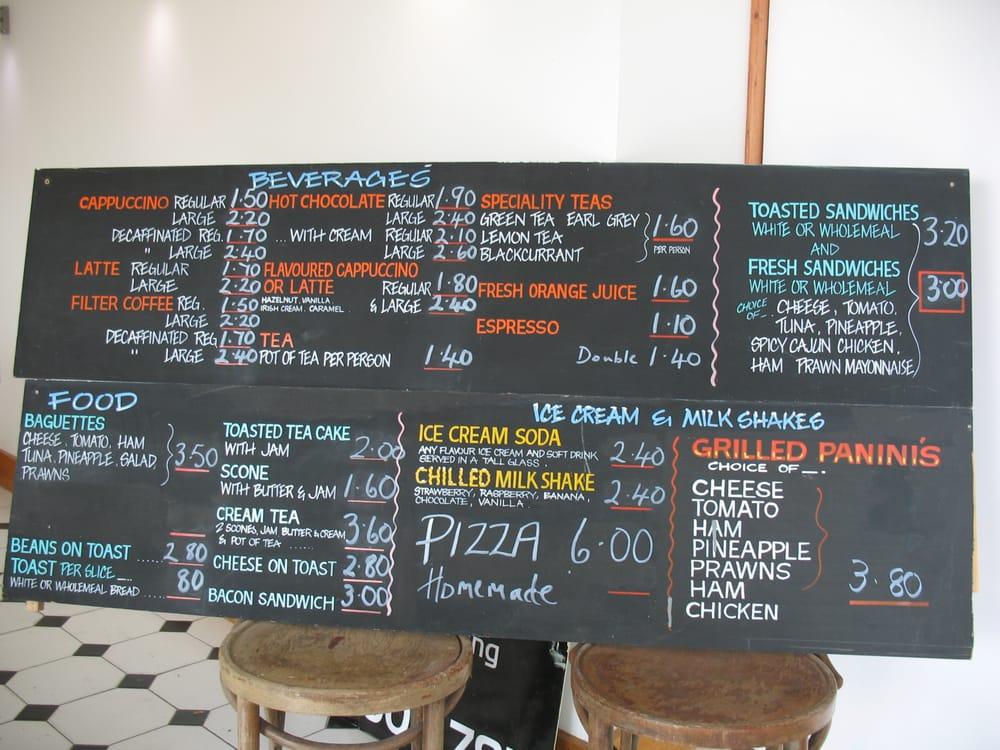 BEVERAGES
CAPPUCCINO REGULAR 1.50
LARGE 2.20
DECAFFINATED REG. 1.70
" LARGE 2.40
LATTE REGULAR 1.70
LARGE 2.20
FILTER COFFEE REG. 1.50
LARGE 2.20
DECAFFINATED REG 1.70
" LARGE 2.40
HOT CHOCOLATE REGULAR 1.90
LARGE 2.40
...WITH CREAM REGULAR 2.10
LARGE 2.60
FLAVOURED CAPPUCCINO
OR LATTE REGULAR 1.80
HAZELNUT. VANILLA.
IRISH CREAM. CARAMEL. & LARGE 2.40
TEA
POT OF TEA PER PERSON 1.40
SPECIALITY TEAS
GREEN TEA EARL GREY
LEMON TEA
BLACKCURRANT
1.60
PER PERSON
FRESH ORANGE JUICE 1.60
ESPRESSO 1.10
Double 1.40
TOASTED SANDWICHES
WHITE OR WHOLEMEAL 3.20
AND
FRESH SANDWICHES
WHITE OR WHOLEMEAL 3.00
CHOICE OF-. CHEESE, TOMATO,
TUNA, PINEAPPLE,
SPICY CAJUN CHICKEN,
HAM PRAWN MAYONNAISE
FOOD
BAGUETTES
CHEESE. TOMATO. HAM
TUNA. PINEAPPLE. SALAD
PRAWNS
3.50
BEANS ON TOAST ..... 2.80
TOAST PER SLICE
WHITE OR WHOLEMEAL BREAD ..... 80
TOASTED TEA CAKE
WITH JAM 2.00
SCONE
WITH BUTTER & JAM 1.60
CREAM TEA
2 SCONES, JAM BUTTER & CREAM
& POT OF TEA ...... 3.60
CHEESE ON TOAST 2.80
BACON SANDWICH 3.00
ICE CREAM & MILK SHAKES
ICE CREAM SODA
ANY FLAVOUR ICE CREAM AND SOFT DRINK
SERVED IN A TALL GLASS. 2.40
CHILLED MILK SHAKE
STRAWBERRY, RASPBERRY, BANANA,
CHOCOLATE, VANILLA. 2.40
PIZZA 6.00
Homemade
GRILLED PANINI'S
CHOICE OF
CHEESE
TOMATO
HAM
PINEAPPLE
PRAWNS
HAM
CHICKEN
3.80
ng